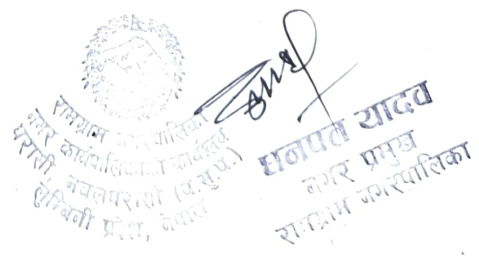 रामग्राम नगरपालिका
नगर कार्यपालिकाको कार्यालय
परासी, नवलपरासी (ब.सु.प.)
लुम्बिनी प्रदेश, नेपाल
धनपत यादव
नगर प्रमुख
रामग्राम नगरपालिका